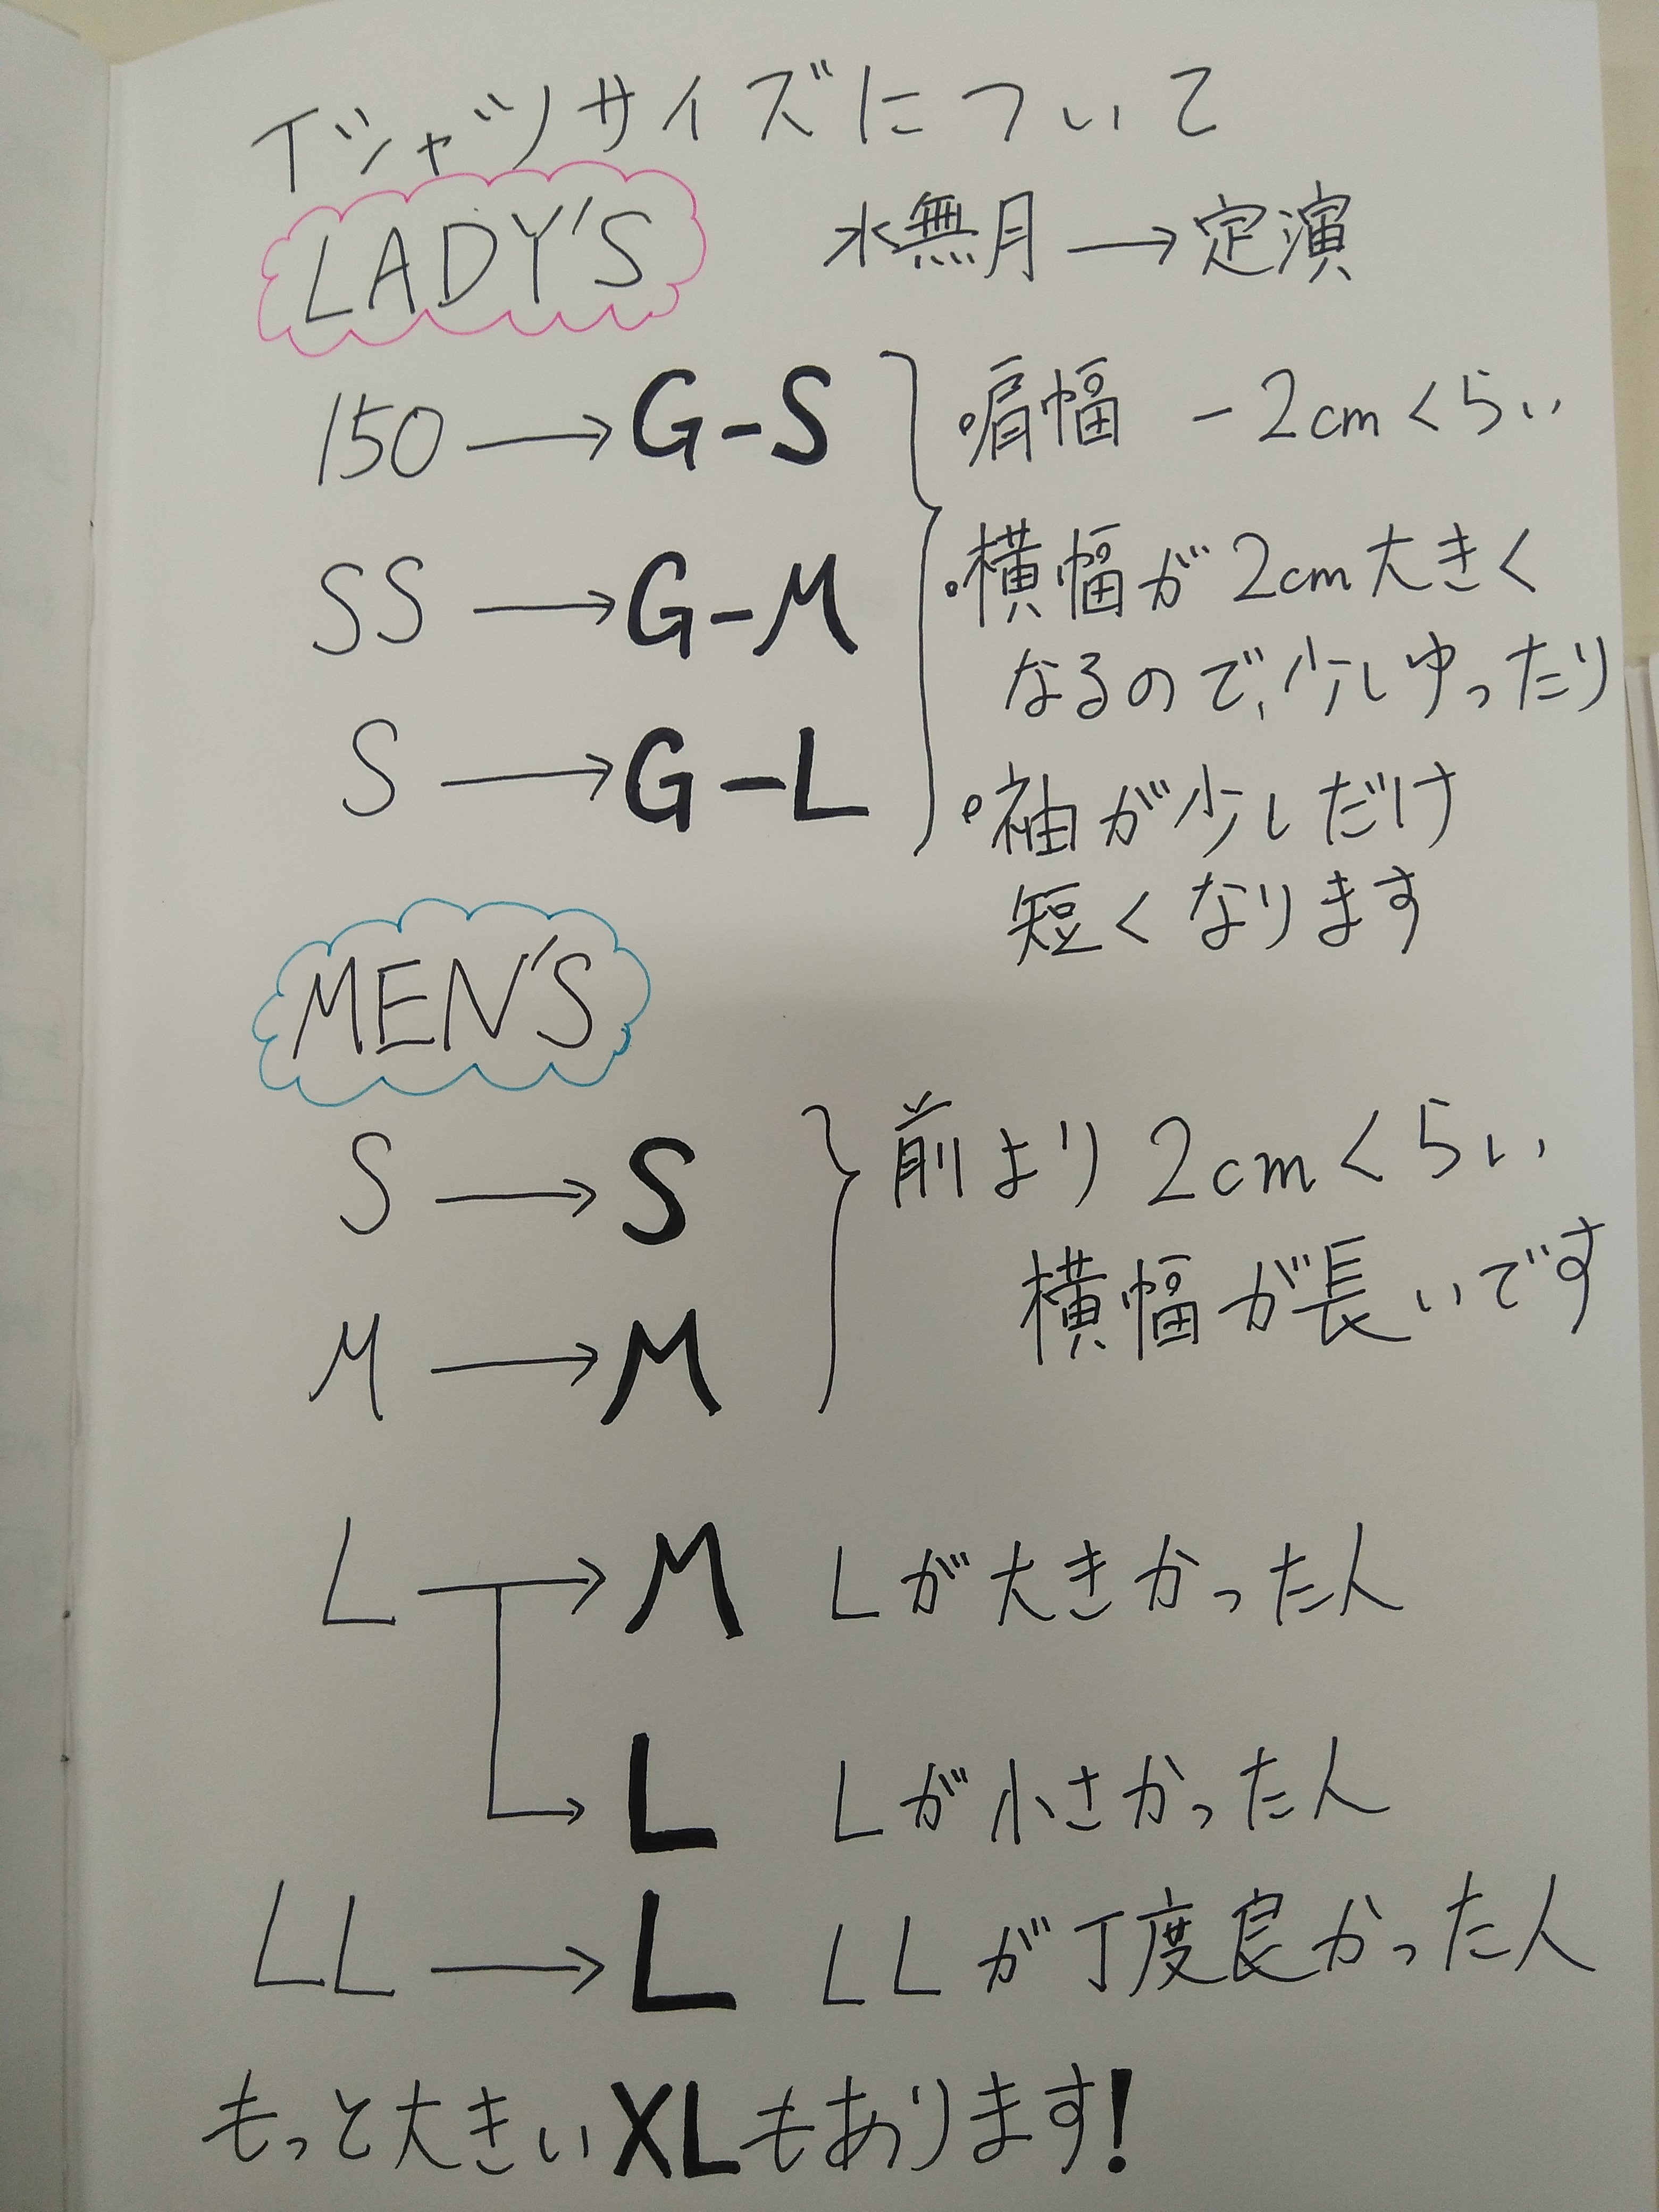 Tシャツサイズについて
LADY'S
水無月→定演
150→G-S
・肩幅 -2cmくらい
SS→G-M
・横幅が2cm大きく
なるので、少しゆったり
S→G-L
・袖が少しだけ
短くなります
MEN'S
S→S
前より2cmくらい
横幅が長いです
M→M
L→M Lが大きかった人
→L Lが小さかった人
LL→L LLが丁度良かった人
もっと大きいXLもあります!